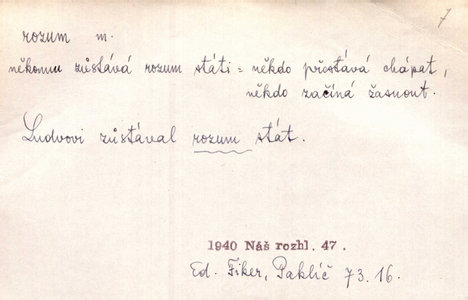 7
rozum m.
někomu zůstává rozum státi = někdo přestává chápat,
někdo začíná žasnout.
Ludvovi zůstával rozum stát.
1940 Náš rozhl. 47.
Ed. Fiker, Paklíč 73.16.